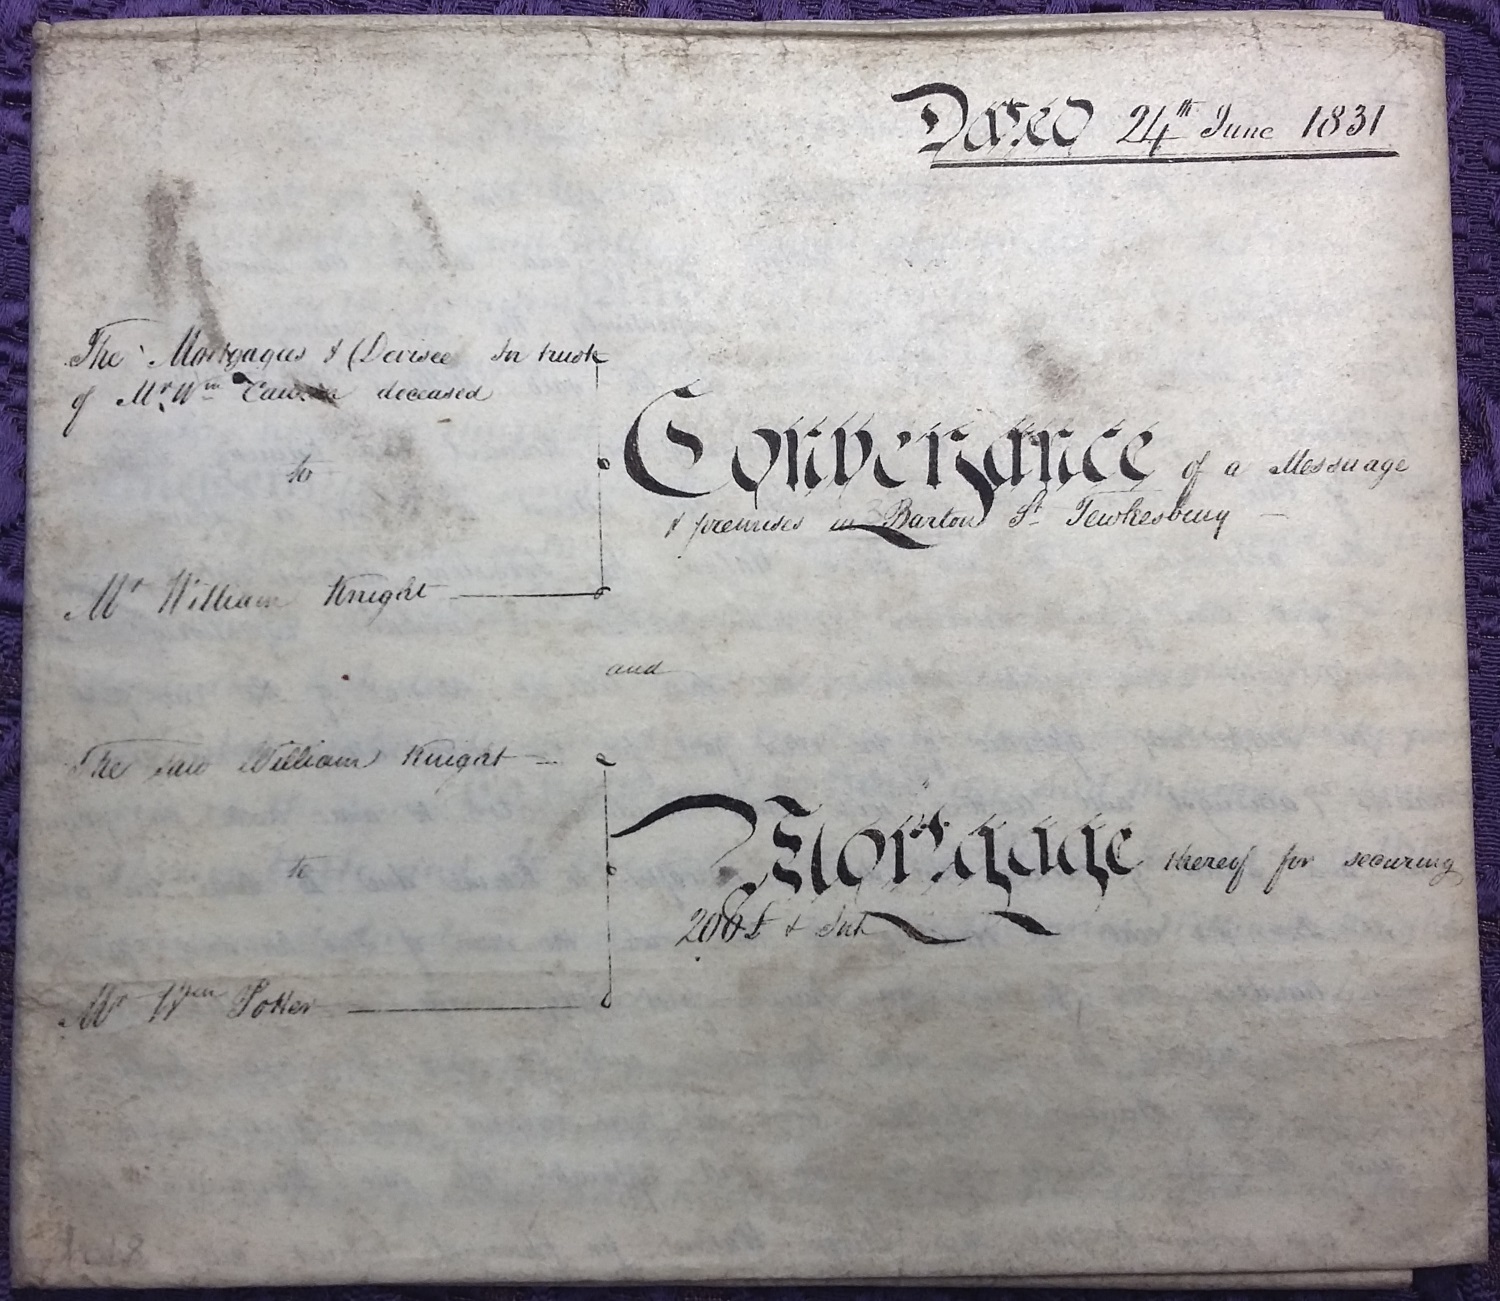 Dated 24th June 1831
The Mortgagees & Devisee in trust
of Mr. Wm. deceased
to
Mr William Knight
Conveyance of a Messuage
& premises in Barton St. Tewkesbury
and
The said William Knight
to
Mr Wm
Mortgage thereof for securing
200£ & Int